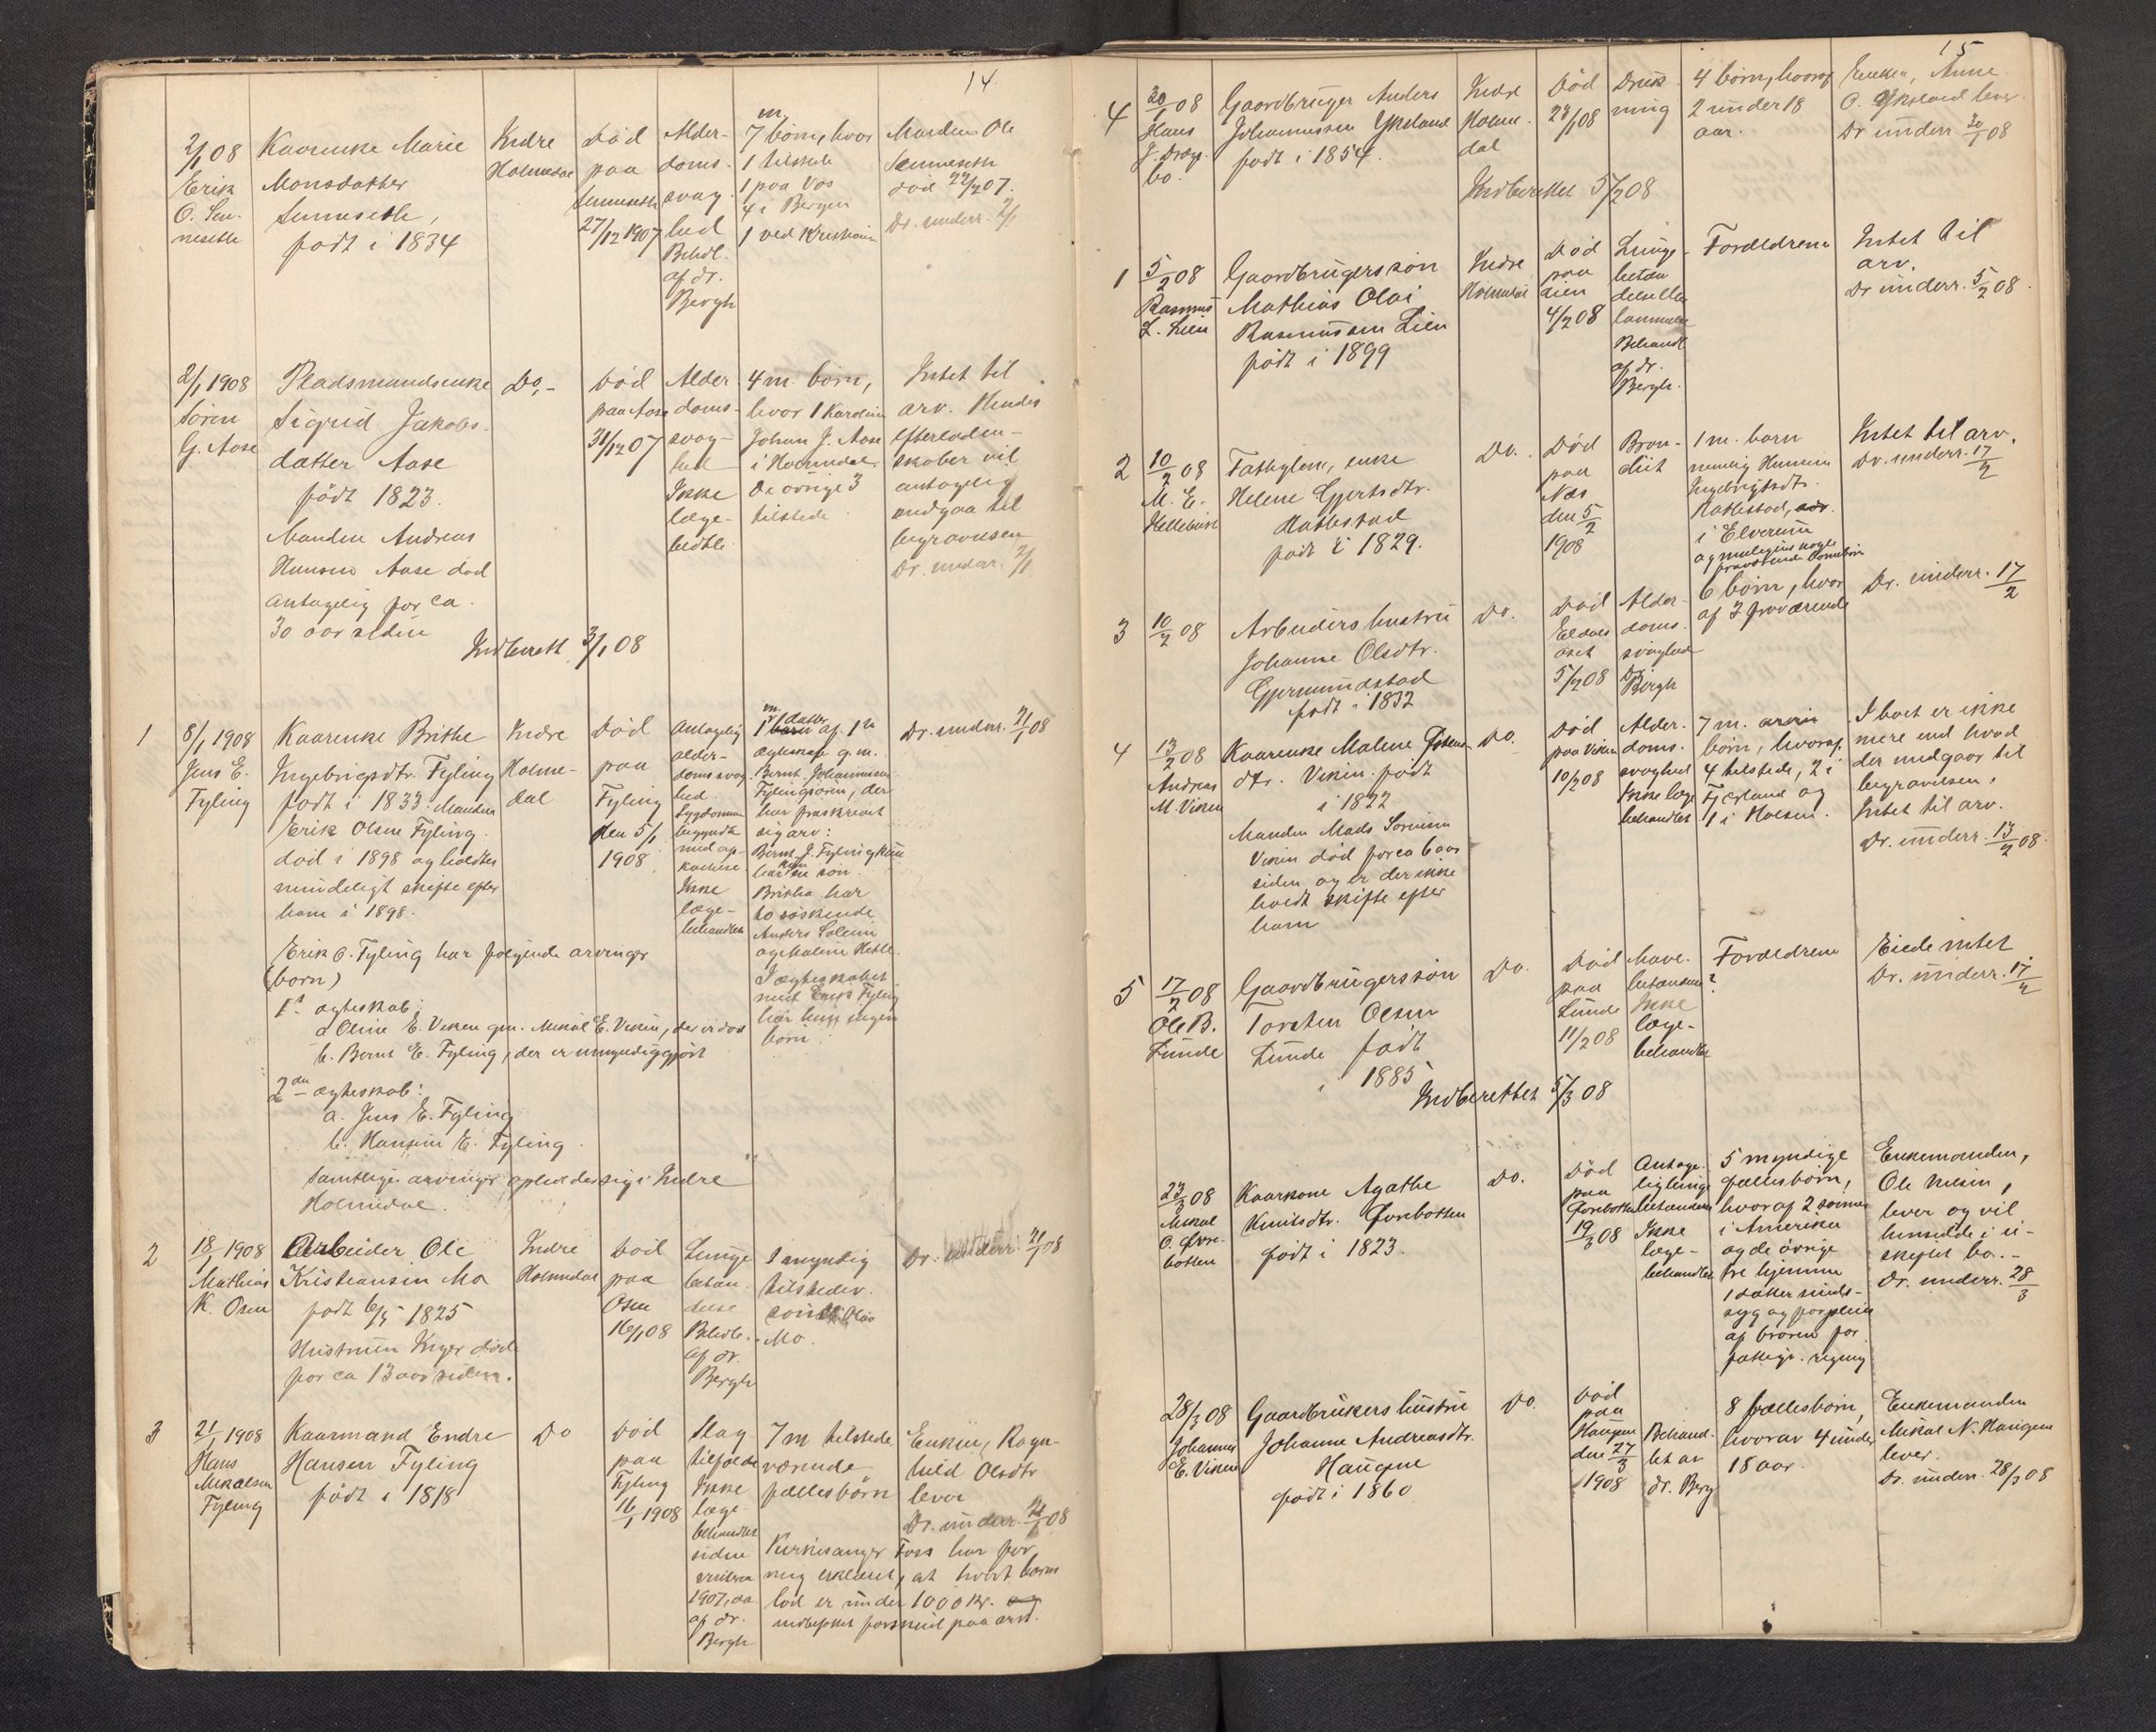 14.
2/1 08
Erik
O. Sen-
neseth
Kaarenke Marie
Monsdatter
Senneseth,
født i 1834
Indre
Holmedal
Død
paa
Senneseth
27/12 1907
Alder-
doms-
svag-
hed
Behdl.
af dr.
Bergh
m.
7 børn, hvor
1 tilstede
1 paa Vos
4 i Bergen
1 ved Kristiania
Manden Ole
Senneseth
død 22/2 07.
Dr. underr. 2/1
2/1 1908
Søren
G. Aase
Pladsmandsenke
Sigrid Jakobs-
datter Aase
født 1823.
Manden Andreas
Hansen Aase død
antagelig for ca.
30 aar siden
Do.-
Død
paa Aase
31/12 07
Alder
doms-
svag-
hed
Ikke
læge-
bedtle
4 m. børn,
hvor 1 Karolin
Johan J. Aase
i Holmedal.
De øvrige 3
tilstede
Intet til
arv. Hendes
efterladen-
skaber vil
antagelig
medgaa til
begravelsen
Dr. underr. 2/1
Indberett 3/1 08
1
8/1 1908
Jens E.
Fyling
Kaarenke Brithe
Ingebrigtsdtr. Fyling
født i 1833. Manden
Erik Olsen Fyling
død i 1898 og holdtes
mindeligt skifte efter
ham i 1898.
Indre
Holme-
dal
Død
paa
Fyling
den 5/1
1908
Antagelig
alder-
domssvag-
hed.
Sygdommen
begyndte
med op-
kastelse
Ikke
læge-
behandlet
m.
1 datter af 1ste
ægteskap g.m.
Bernt Johannesen
Fylingsøren, der
har fraskrevet
sig arv:
Bernt J. Fylingsøren
har kun en søn
Brithe har
to søskende
Anders Solheim
og Malene Hetle.
I ægteskabet
med Erik Fyling
har hun ingen
børn
Dr. underr. 21/1 08
Erik O. Fyling har følgende arvinger
(børn)
1ste ægteskab:
a Oline E. Viken gm. Mikal E. Viken, der er død
b. Bernt E. Fyling, der er umyndiggjort
2den ægteskab:
a. Jens E. Fyling
b. Hansine E. Fyling.
Samtlige arvinger opholder sig i Indre
Holmedal.
2
18/1 1908
Mathias
K. Osen
Arbeider Ole
Kristiansen Mo
født 6/5 1825
Hustruen Inger død
for ca 13 aar siden.
Indre
Holmedal
Død
paa
Osen
16/1 08
Lunge
betæn-
delse
Behdle.
af dr.
Bergh
1 myndig
tilstedev.
søn Olav
Mo.
Dr. underr. 21/1 08
3
21/1 1908
Hans
Mikalsen
Fyling
Kaarmand Endre
Hansen Fyling
født i 1818
Do
Død
paa
Fyling
16/1 1908
Slag-
tilfælde
Ikke
læge-
behandlet
siden
1907, da
af dr.
Bergh
7 m tilstede
værende
fællesbørn
Enken, Ragn-
hild Olsdtr
lever
Dr. underr. 21/1 08
Kirkesanger Foss har for
mig erklæret, at hvert barns
lod er under 1000 kr.
indbefattet forskud paa arv.
15
4
30/1 08
Hans
J. Drægs-
bo.
Gaardbruger Anders
Johannessen Yksland
født i 1854.
Indre
Holme-
dal
Død
28/1 08
Druk-
ning
4 børn, hvoraf
2 under 18
aar.
Enken, Anne
O. Yksland lever.
Dr underr. 30/1 08
Indberettet 5/2 08
1
5/2 08
Rasmus
L. Lien
Gaardbrugersøn
Mathias Olai
Rasmussen Lien
født i 1899
Indre
Holmedal
Død
paa
Lien
4/2 08
Lunge-
betæn
delse
Behandl.
af dr.
Bergh.
Forældrene
Intet til
arv.
Dr underr. 5/2 08.
2
10/2 08
M. E.
Hellebust
Fattiglem, enke
Helene Gjertsdtr.
Hatlestad
født i 1829.
Do.
Død
paa
Nes
den 5/2
1908
Bron-
chit
1 m. barn
nemlig Hansine
Ingebrigtsdtr.
Hatlestad,
i Elverum
og muligens nogle
fraværende barnebørn
Intet til arv.
Dr. underr. 17/2
3
10/2 08
Arbeiders hustru
Johanne Olsdtr.
Gjermundstad
født i 1832
Do.
Død
Eldals
øset
5/2 08
Alder-
doms-
svaghed
Dr
Bergh
6 børn, hvor
af 3 fraværende
Dr. underr. 17/2
4
13/2 08
Andreas
M. Viken
Kaarenke Malene Østens
dtr. Viken født
i 1822
Manden Mads Sørensen
Viken død for ca 6 aar
siden og er der ikke
holdt skifte efter
ham
Do.
Død
paa Viken
10/2 08
Alder-
doms-
svaghed
Ikke læge
behandlet
7 m. arvin
børn, hvoraf
4 tilstede, 2 i
Fjærland og
1 i Holsen.
I boet er ikke
mere end hvad
der medgaar til
begravelsen,
Intet til arv.
Dr. underr. 13/2 08.
5
17/2 08
Ole B.
Lunde
Gaardbrugersøn
Torsten Olsen
Lunde født
i 1885
Do.
Død
paa
Lunde
11/2 08
Mave-
betændelse?
Ikke
læge-
behandlet
Forældrene
Eiede intet
Dr. underr. 17/2
Indberettet 5/3 08
23/3 08
Mikal
O. Øvre-
botten
Kaarkone Agathe
Knutsdtr. Øvrebotten
født i 1823.
Do.
Død
paa
Øvrebotten
19/3 08
Antage-
lig lunge
betændelse
Ikke
læge-
behandlet
5 myndige
fællesbørn,
hvoraf 2 sønner
i Amerika
og de øvrige
tre hjemme
1 datter sinds-
syg og forpleies
af broren for
fattigv. regning
Enkemanden,
Ole Nilsen,
lever og vil
hensidde i u-
skiftet bo.-
Dr. underr. 28/3
28/3 08
Johannes
E. Viken
Gaardbrukers hustru
Johanne Andreasdtr.
Haugen
født i 1860
Do.
Død
paa
Haugen
den 27/3
1908
Behand-
let av
dr. Berg
8 fællesbørn,
hvorav 4 under
18 aar.
Enkemanden
Mikal N. Haugen
lever.
Dr. underr. 28/3 08